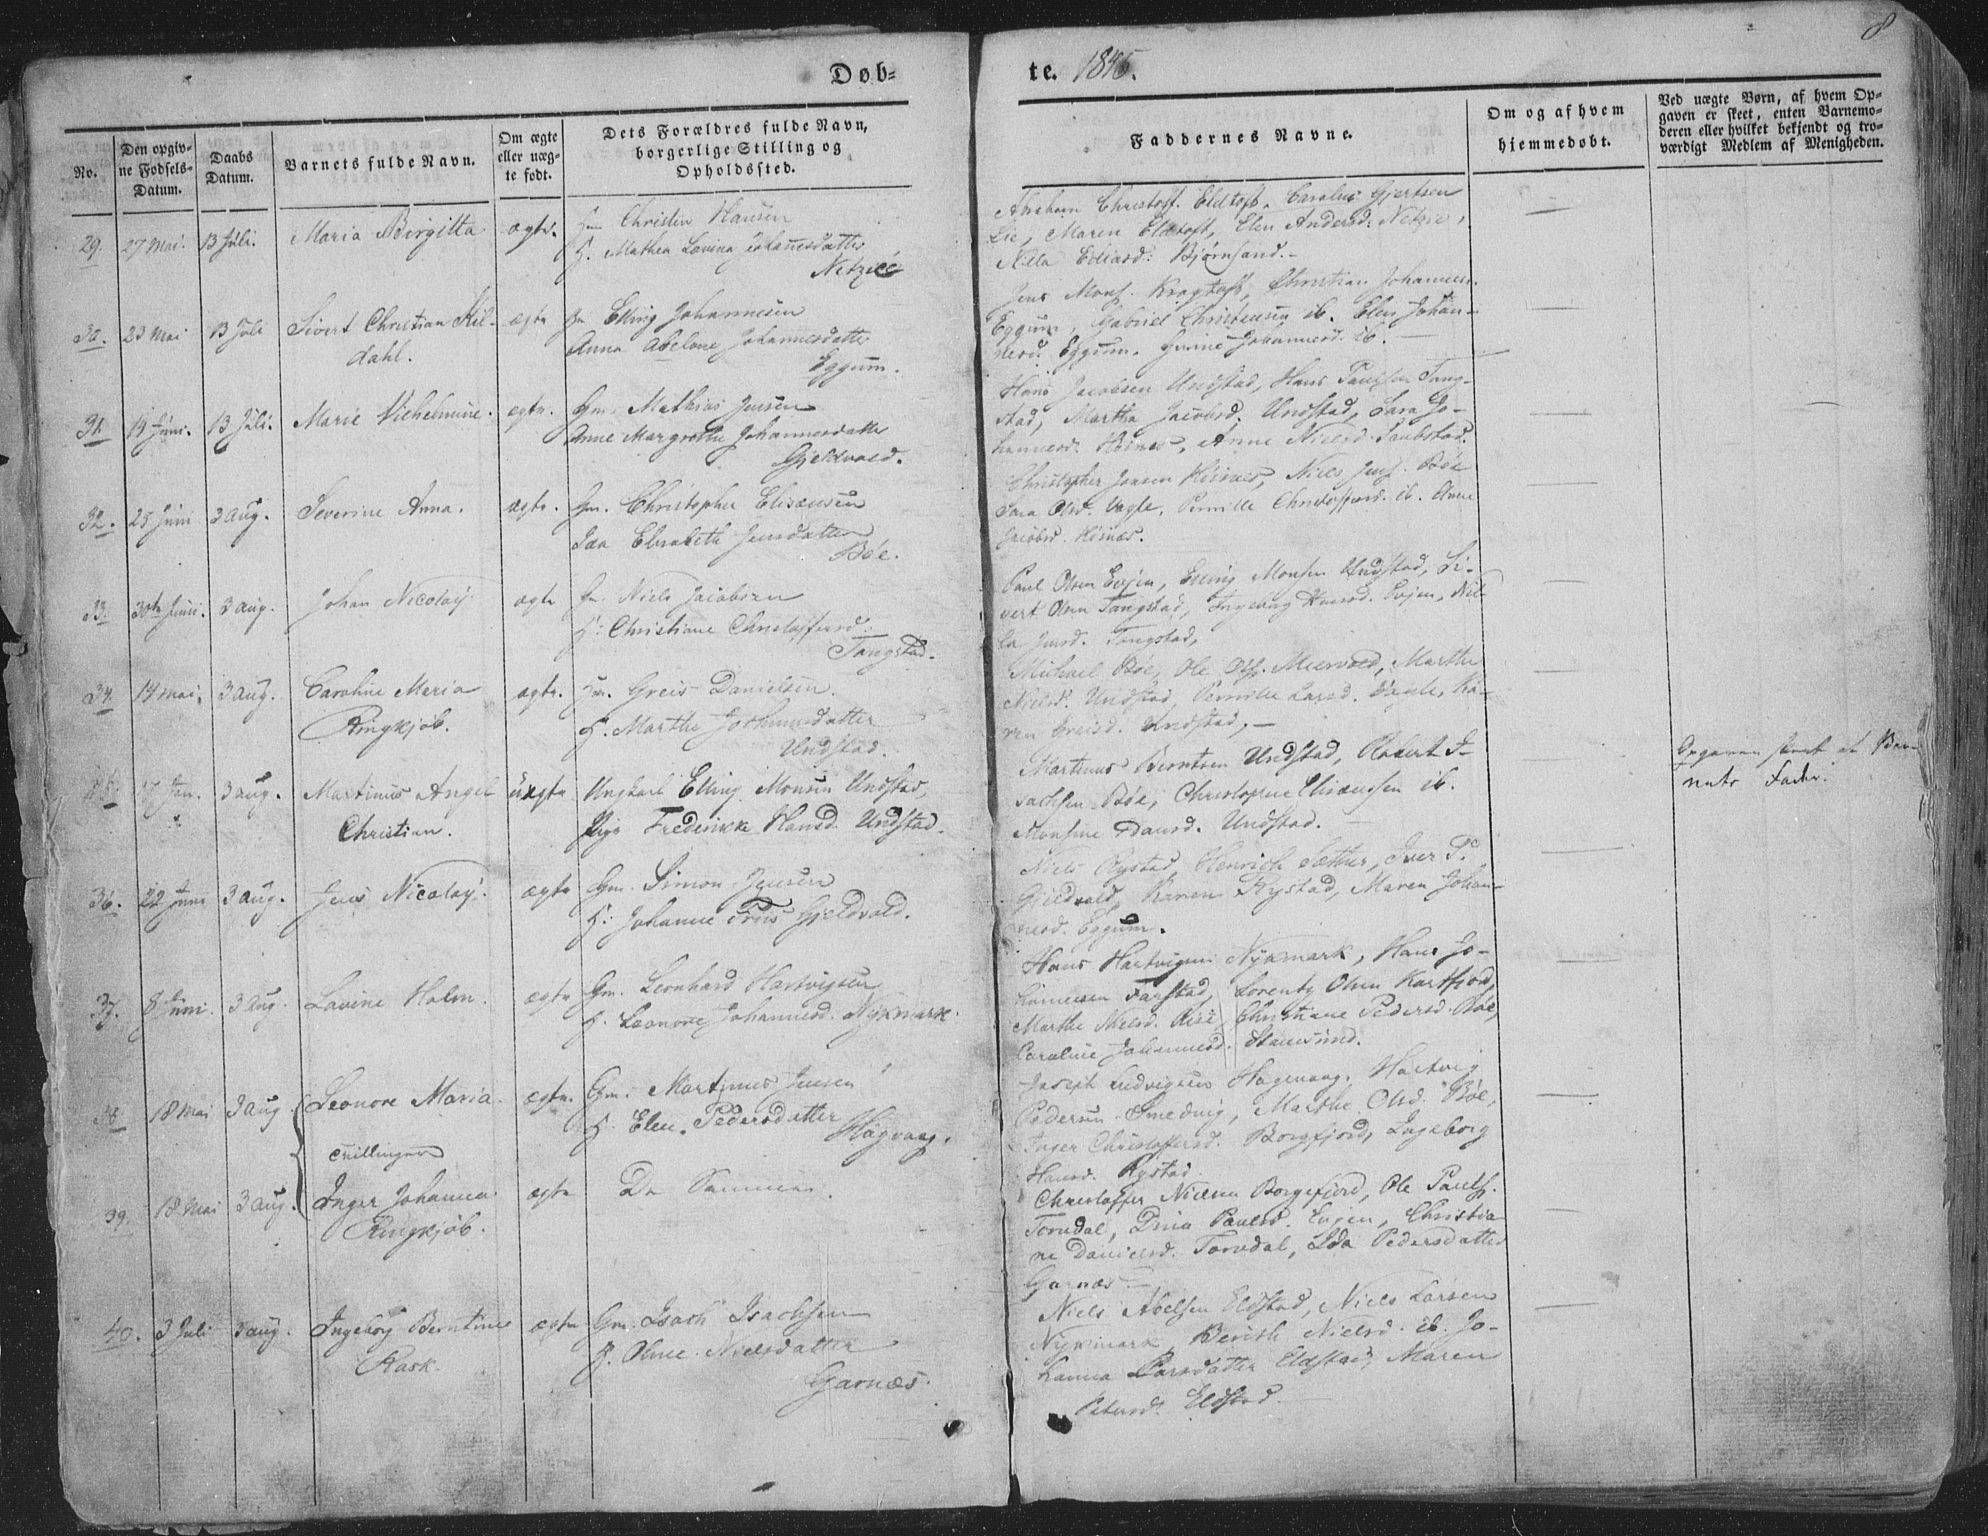 8
Døb=
te. 1845.
No.
Den opgiv=
ne Fødsels=
Datum.
Daabs
Datum.
Barnets fulde Navn.
Om ægte
eller uæg=
te født.
Dets Forældres fulde Navn,
borgerlige Stilling og
Opholdssted.
Faddernes Navne.
Om og af hvem
hjemmedøbt.
Ved uægte Børn, af hvem Op=
gaven er skeet, enten Barnemo=
deren eller hvilket bekjendt og tro=
værdigt Medlem af Menigheden.
29. 27 Mai. 13 Juli. Maria Birgitta ægte. Christen Hansen
H. Mathea Lovina Johannesdatter
Abraham Christoff. Eldtoft, Carolus Gjertsen
Lie, Maren Eldtoft, Elen Andersd.
Bjørnsand.
30. 23 Mai 13 Juli Sivert Christian Kil-
dahl.
ægte Elling Johannesen
Anna Abelone Johannesdatter
Eggum.
Jens Mons. Kragtoft, Christian Johannesen
Eggum, Gabriel Christensen ib. Elen Johan-
nesd. Eggum. Johannesd. ib.
31. 14 Juni. 13 Juli. Marie Vilhelmine. ægte. Gm. Mathias Jensen
Anne Margrethe Johannesdatter
Gjeldvold.
Hans Jacobsen Undstad, Hans Paulsen Tang-
stad, Martha Jacobsd. Undstad, Sara Jo-
hannesd. Anne Nielsd.
32. 25 Juni 3 Aug. Severine Anna. ægte. Gm. Christopher Eliæusen
Elisabeth Jensdatter
Bøe.
Christopher Jonsen Niels Jens. Bøe
Sara Olsd. Vagle, Pernille Christoffersd. ib. Anne
Jacobsd.
33. 30te Juni. 3 Aug. Johan Nicolay. ægte Gm. Niels Jacobsen
H. Christiane Christoffersd.
Tangstad.
Paul Olsen Evjen, Elling Monsen Undstad, Si-
vert Olsen Tangstad, Ingeborg Evjen, Nil-
la Jensd. Tangstad,
34. 14 Mai. 3 Aug. Caroline Maria
Ringkjøb.
ægte. Gm. Greis Danielsen.
H. Marthe Johannesdatter
Undstad.
Michael Bøe, Ole Ols. Meervold, Marthe
Nielsd. Undstad, Pernille Larsd. Vagle, Ka-
ren Greisd. Undstad.
35. 17 Jan. 3 Aug. Martinus Angel
Christian.
uægte Ungkarl Elling Monsen Undstad,
Pige Frederikke Hansd. Undstad.
Martinus Berntsen Undstad, Robert I-
sachsen Bøe, Christopher Eliæussen ib.
Monsine Undstad.
Opgaven skeet af Bar-
nets Fader.
36. 22 Juni 3 Aug. Jens Nicolay. ægte Gm. Simon Jensen
H. Johanne Friis Gjeldvold.
Niels Rystad, Henrich Sæther, Iver P.
Gjeldvold, Karen Rystad, Maren Johan-
nesd. Eggum.
37. 8 Juni. 3 Aug. Lavine Holm. ægte Gm. Leonhard Hartvigsen
H. Leonore Johannesd. Nykmark.
Hans Hartvigsen Nykmark, Hans Jo-
hannesen Farstad, Lorentz Olsen Kartfjord,
Marthe Nielsd. Christiane Pedersd. Bøe,
Caroline Johannesd. Stamsund.
38. 18 Mai 3 Aug. Leonore Maria. ægte. Gm. Martinus Jensen
H. Elen Pedersdatter
Hagvaag.
Joseph Ludvigsen Hagevaag, Hartvig
Pedersen Smedvig, Marthe Olsd. Bøe,
Inger Christoffersd. Borgfjord, Ingeborg
Hansd. Rystad.
Tvillinger
39. 18 Mai 3 Aug. Inger Johanna
Ringkjøb.
ægte De Samme.
Christoffer Nielsen Borgefjord, Ole Pauls.
Torvdal, Paulsd. Evjen, Christia-
ne Danielsd. Torvdal, Ida Pedersdatter
Garnæs.
40. 3 Juli 3 Aug. Ingeborg Berntine
Rask.
ægte Gm. Isach Isachsen
H. Oline Nielsdatter
Garnæs.
Niels Abelsen Eldstad, Niels Larsen
Nykmark, Berith Nielsd. ib. Jo-
hanna Larsdatter Eldstad, Maren
Petersd. Eldstad.